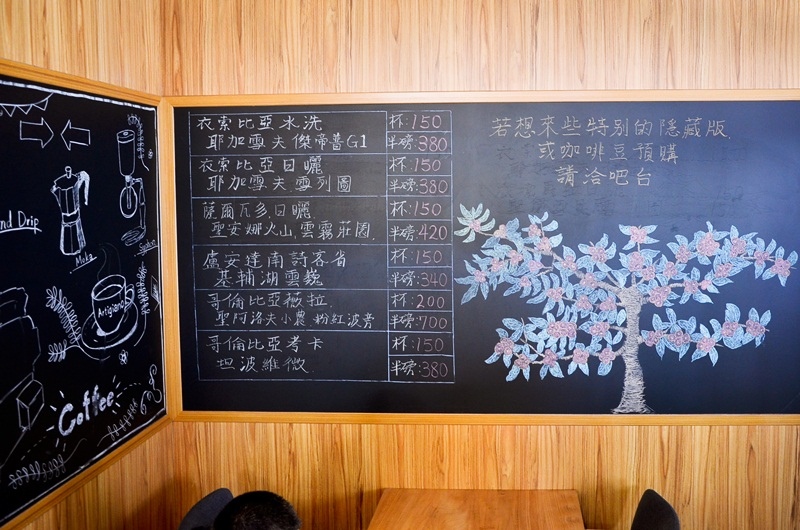 nd Drip
Moka
Siphon
Artigiano
Coffee
衣索比亞水洗 杯:150
耶加雪夫傑帝普G1 半磅:380
衣索比亞日曬 杯:150
耶加雪夫.雪列圖 半磅:380
薩爾瓦多.日曬 杯:150
聖安娜火山.雲霧莊園 半磅:420
盧安達南詩客省 杯:150
基輔湖雲巍 半磅:340
哥倫比亞薇拉 杯:200
聖阿洛夫小農.粉紅波旁 半磅:700
哥倫比亞考卡 杯:150
坦波維微 半磅:380
若想來些特別的隱藏版
或咖啡豆預購
請洽吧台